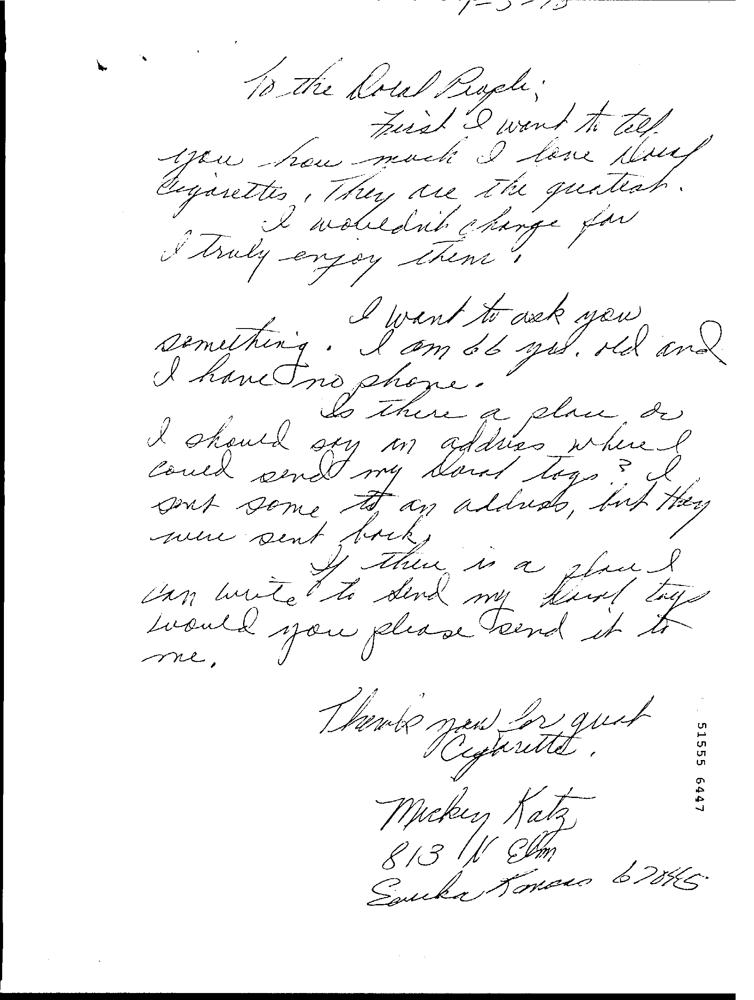 To the Doral People;
First I want to tell
you how much I love Doral
Cigarettes. They are the greatest.
I wouldn't change for
I truly enjoy them.
I want to ask you
something. I am 66 yrs. old and
I have no phone.
Is there a place or
I should say an address where I
could send my Doral tags? I
sent some to an address, but they
were sent back.
If there is a place I
can write to send my Doral tags
would you please send it to
me.
Thank you for great
Cigarette.
Mickey Katz
813 N Elm
Eureka Kansas 67045
51555 6447